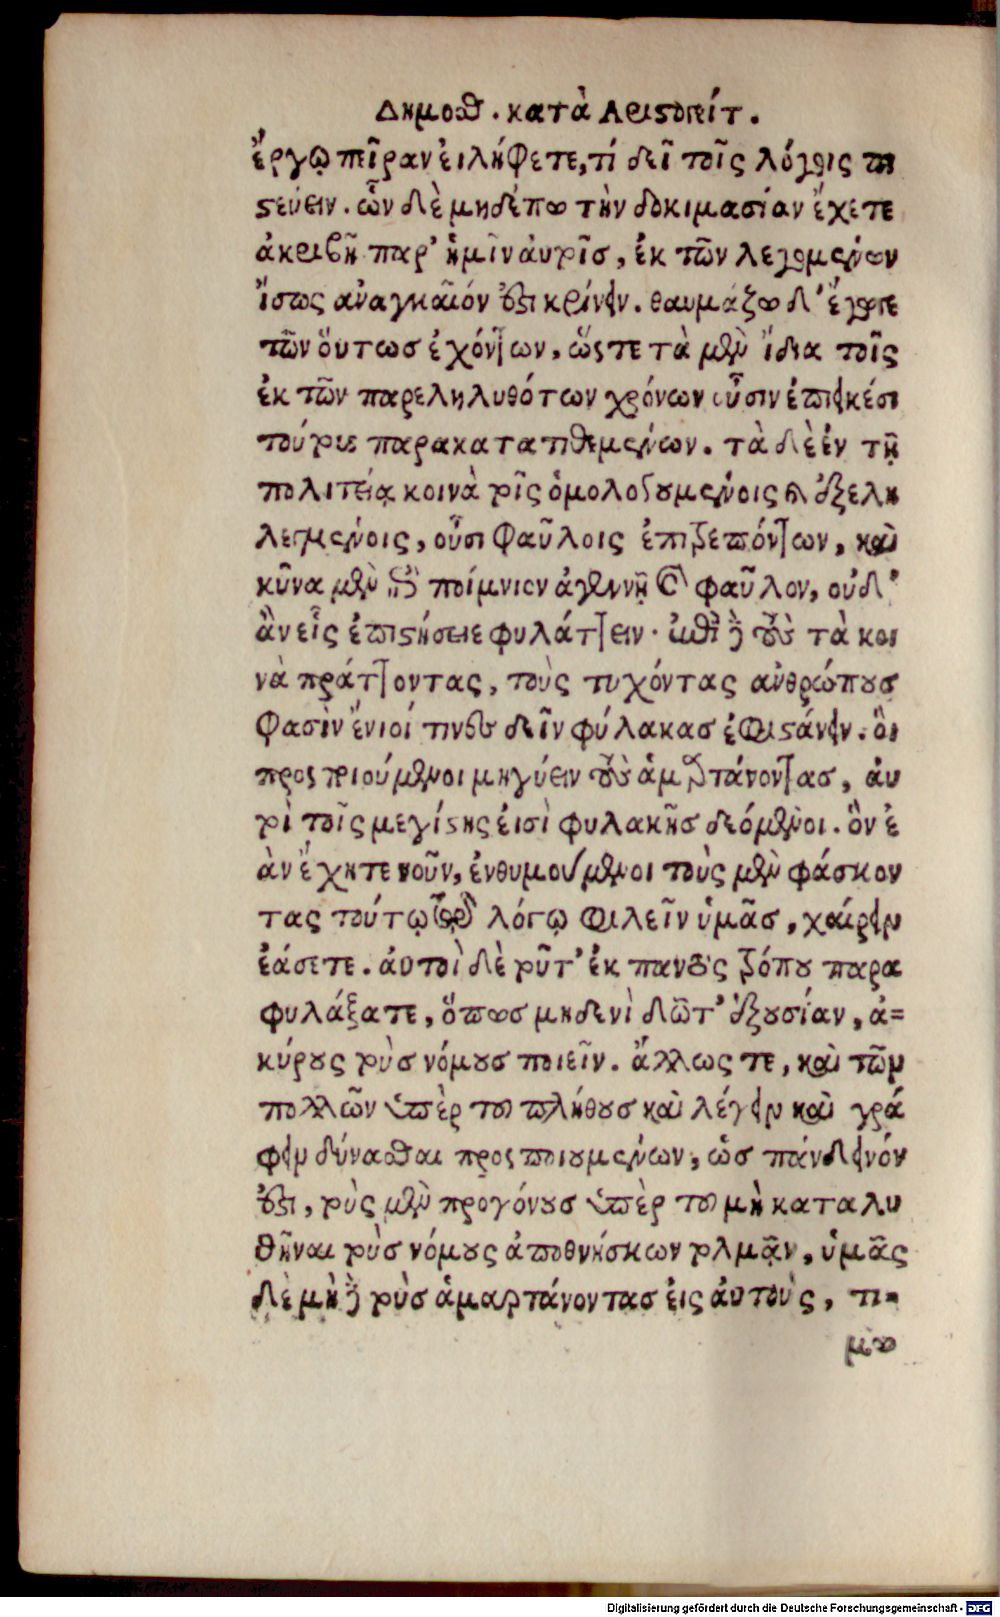 Δημοσθ. κατὰ Αριστογείτ.
ἔργῳ πεῖραν ἐιλήφετε, τί δεῖ τοῖς λόγοις πι
στεύειν. ὧν δὲ μηδέπω τὴν δοκιμασίαν ἔχετε
ἀκριβῆ παρ' ἡμῖν ἀυτοῖσ, ἐκ τῶν λεγομένων
ἴσως αναγκαῖόν ἐστι κρίνειν. θαυμάζω δ' ἔγωγε
τῶν ὅυτωσ ἐχόντων, ὥστε τὰ μὲν ἴδια τοῖς
ἐκ τῶν παρεληλυθότων χρόνων οὖσιν ἐπιεικέσι
τούτοις παρακατατιθεμένων. τὰ δὲ ἐν τῇ
πολιτείᾳ κοινὰ τοῖς ὁμολογουμένοις καὶ ἐξελη
λεγμένοις, οὖσι φαῦλοις ἐπιτρεπόντων, καὶ
κῦνα μὲν ἐπὶ ποίμνιον ἀγεννῆ καὶ φαῦλον, οὐδ'
ἂν εἷς ἐπιστήσειε φυλάττειν. ἐπὶ δὲ τοὺς τὰ κοι
νὰ πράττοντας, τοὺς τυχόντας ανθρώπουσ
φασὶν ἔνιοί τινες δεῖν φύλακασ ἐφιστάνειν. ὃι
προσποιούμενοι μηνύειν τοὺς ἁμαρτάνοντασ, ἀυ
τοὶ τοῖς μεγίστης ἐισὶ φυλακῆσ δεόμενοι. ὃν ἐ
ὰν ἔχητε νοῦν, ἐνθυμούμενοι τοὺς μὲν φάσκον
τας τούτῳ τῷ λόγῳ φιλεῖν ὑμᾶσ, χαίρειν
ἐάσετε. ἀυτοὶ δὲ τοῦτ' ἐκ παντὸς τρόπου παρα
φυλάξατε, ὅπωσ μηδενὶ δῶτ' ἐξουσίαν, ἀ=
κύρους τοὺσ νόμουσ ποιεῖν. ἄλλως τε, καὶ τῶν
πολλῶν ὑπὲρ τοῦ πλήθουσ καὶ λέγειν καὶ γρά
φειν δύνασθαι προςποιουμένων, ὡσ πάνδεινόν
ἐστι, τοὺς μὲν προγόνουσ ὑπὲρ τοῦ μὴ καταλυ
θῆναι τοὺσ νόμους ἀποθνήσκων τολμᾷν, ὑμᾶς
δὲ μὴ δὲ τοὺσ ἁμαρτάνοντασ ἐις ἀυτοὺς, τι-
μω
Digitalisierung gefördert durch die Deutsche Forschungsgemeinschaft - DFG